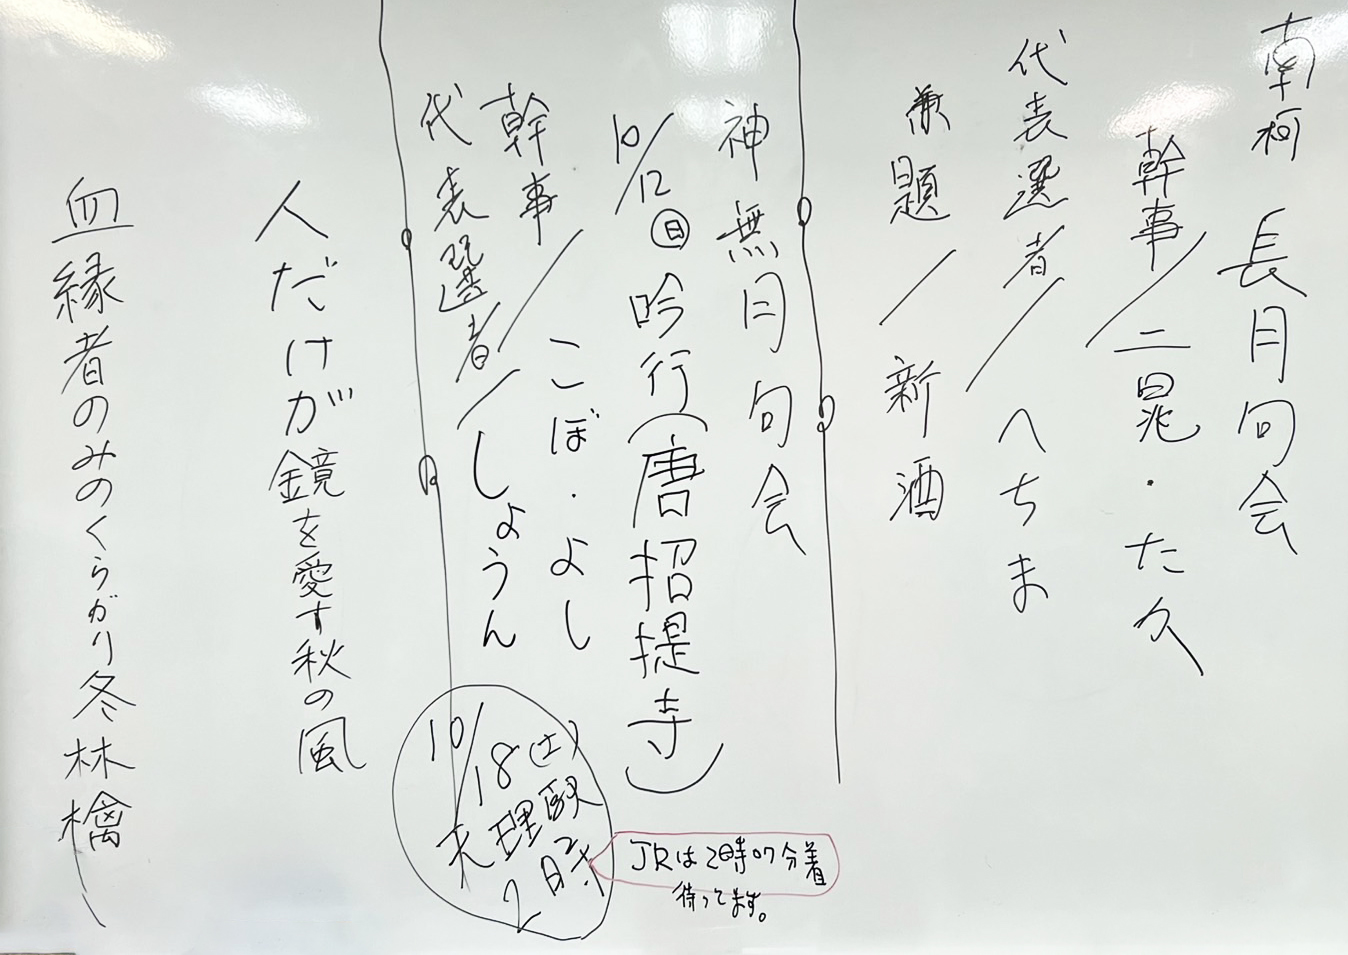 南柯 長月句会
幹事/二晃・た久
代表選者/へちま
兼題/新酒
神無月句会
10/12㊐ 吟行(唐招提寺)
幹事/こぼ・よし
代表選者/しょうん
10/18(土)
天理駅
2時
JRは2時07分着
待ってます。
人だけが鏡を愛す秋の風
血縁者のみのくらがり冬林檎